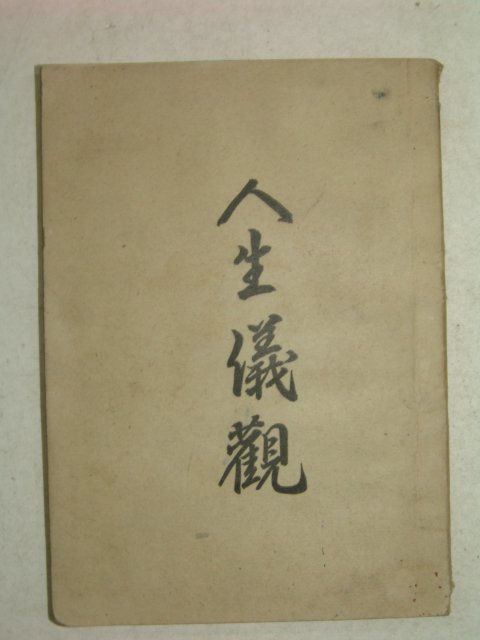 人生儀觀